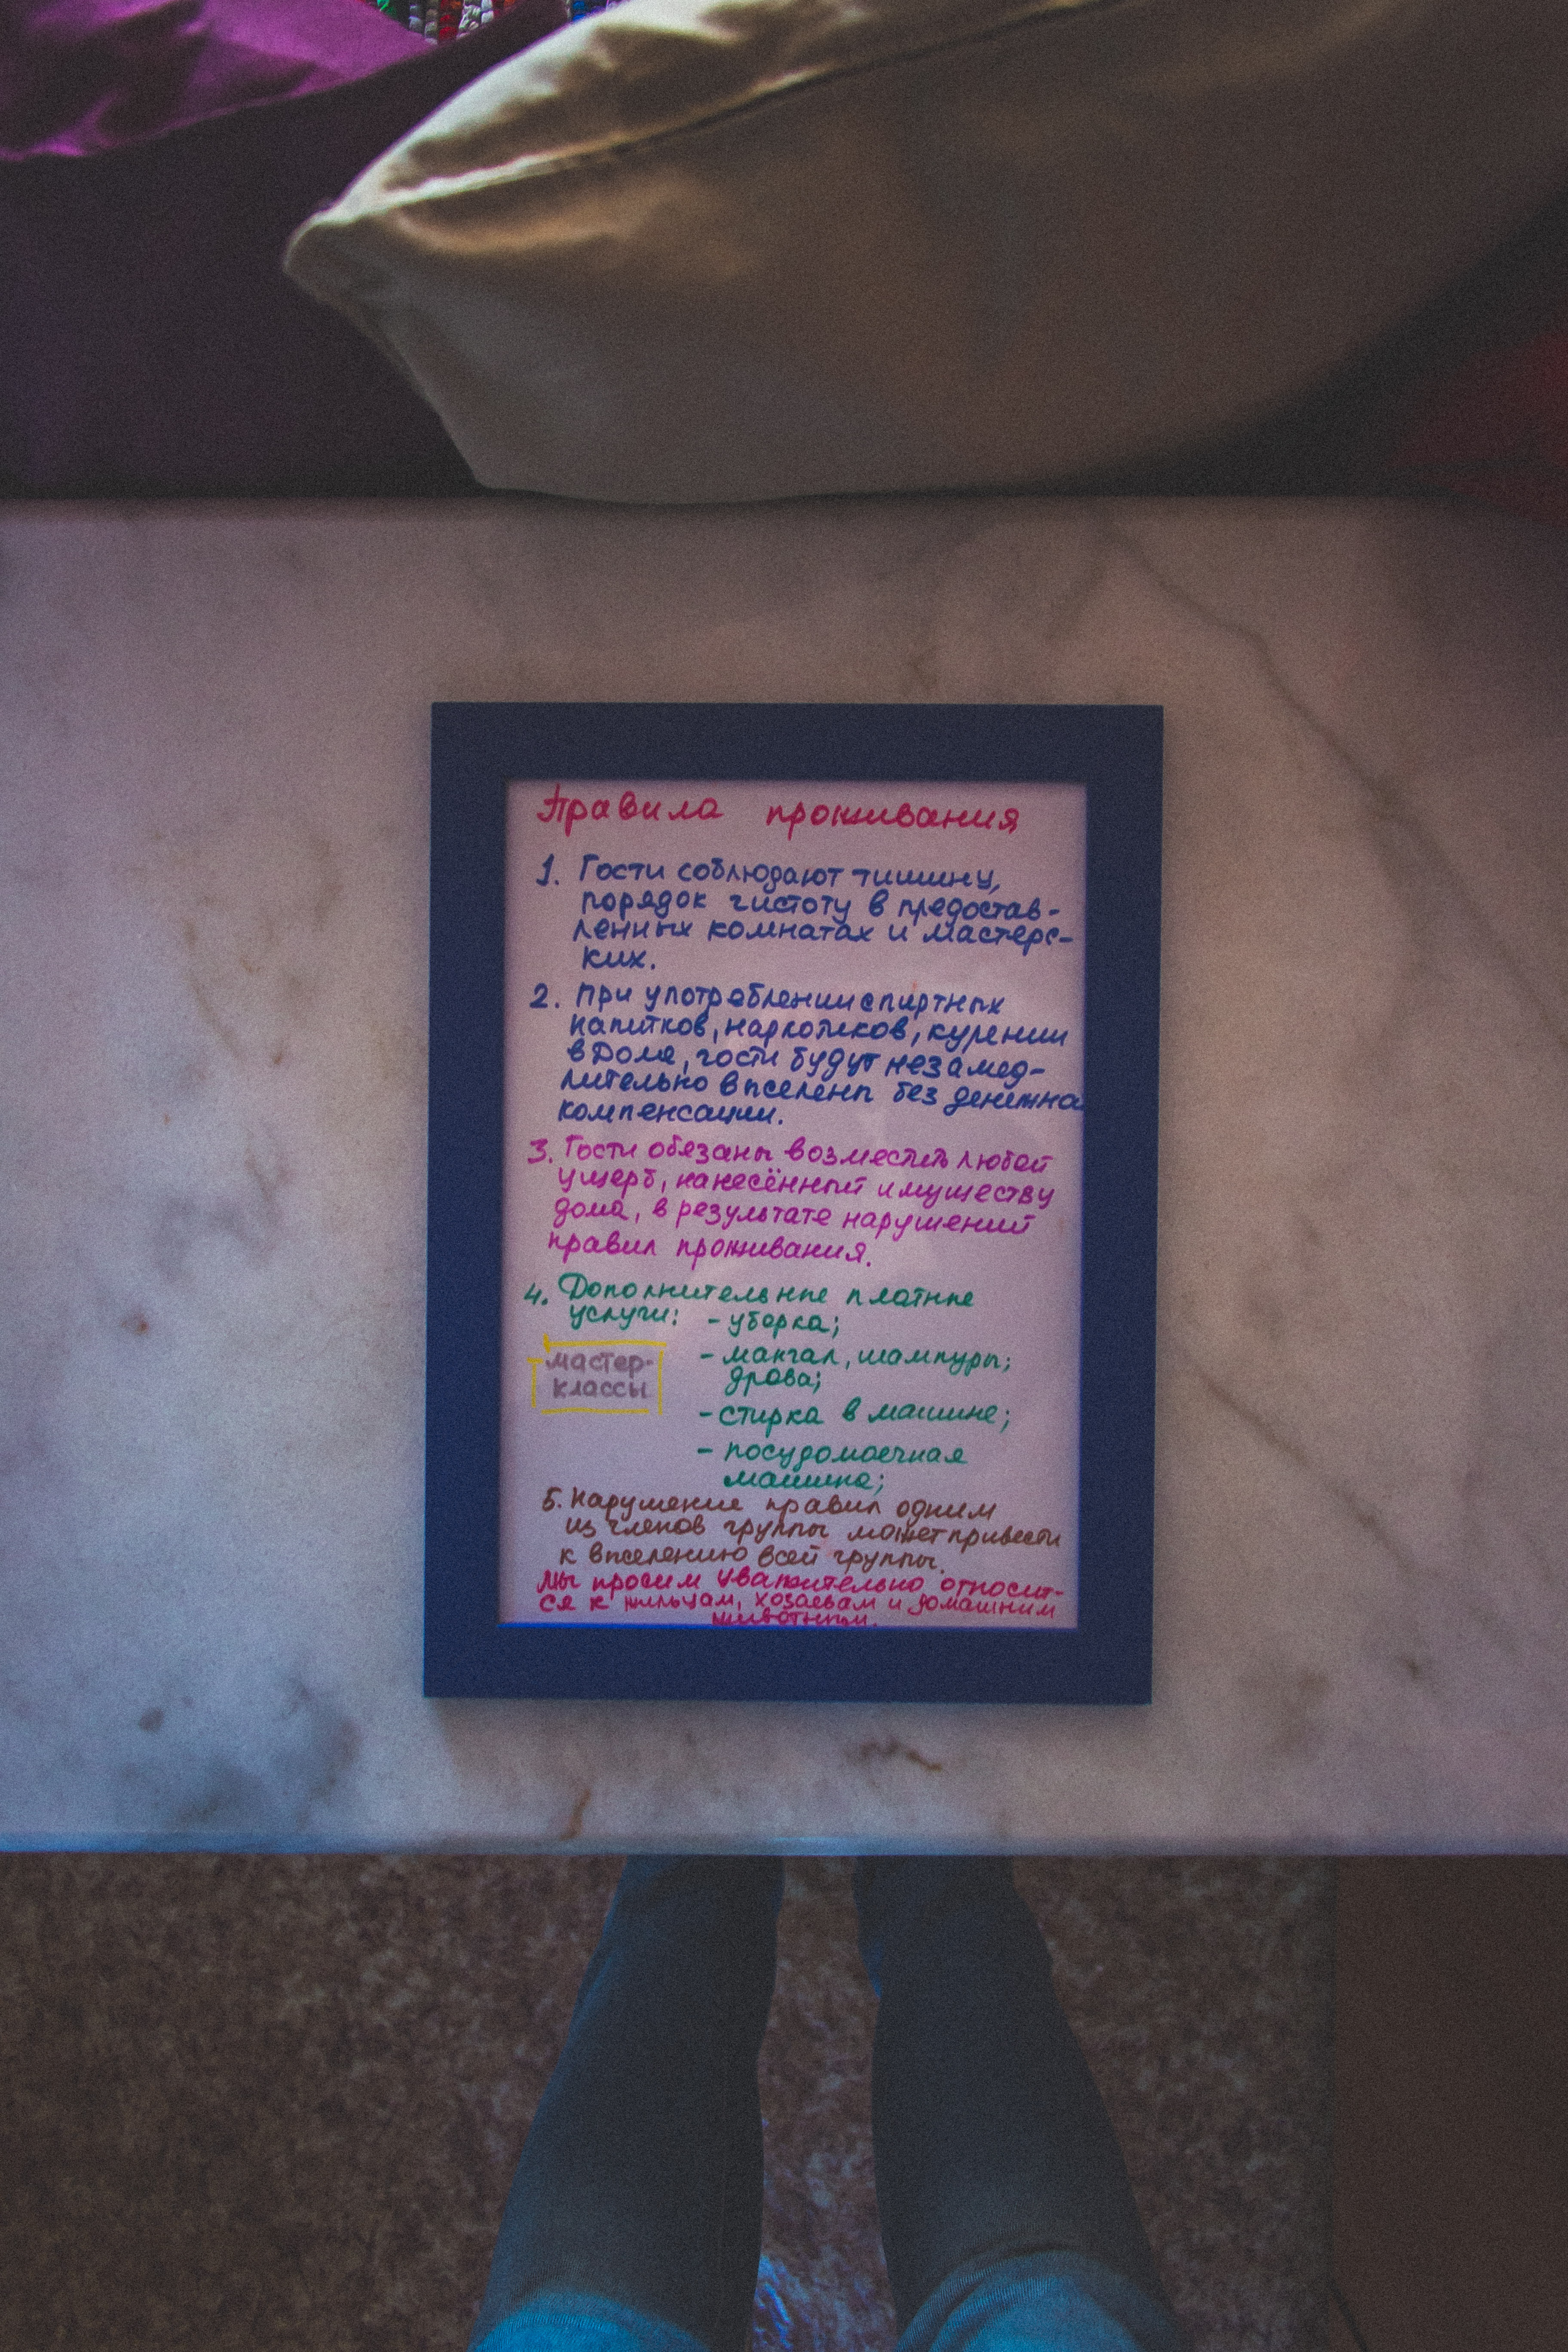 Правила проживания
1. Гости соблюдают тишину,
порядок чистоту в предостав-
ленных комнатах и мастерс-
ких.
2. При употреблении спиртных
напитков, наркотиков, курении
в Доме, гости будут незамед-
лительно выселены без денежна
компенсации.
3. Гости обязаны возместить любой
ущерб, нанесённый имуществу
дома, в результате нарушений
правил проживания.
4. Дополнительные платные
услуги: - уборка;
- мангал, шампуры;
дрова;
мастер-
классы
- стирка в машине;
- посудомоечная
машина;
5. Нарушение правил одним
из членов группы может привести
к выселению всей группы.
Мы просим уважительно относит-
ся к жильцам, хозяевам и домашним
животным.